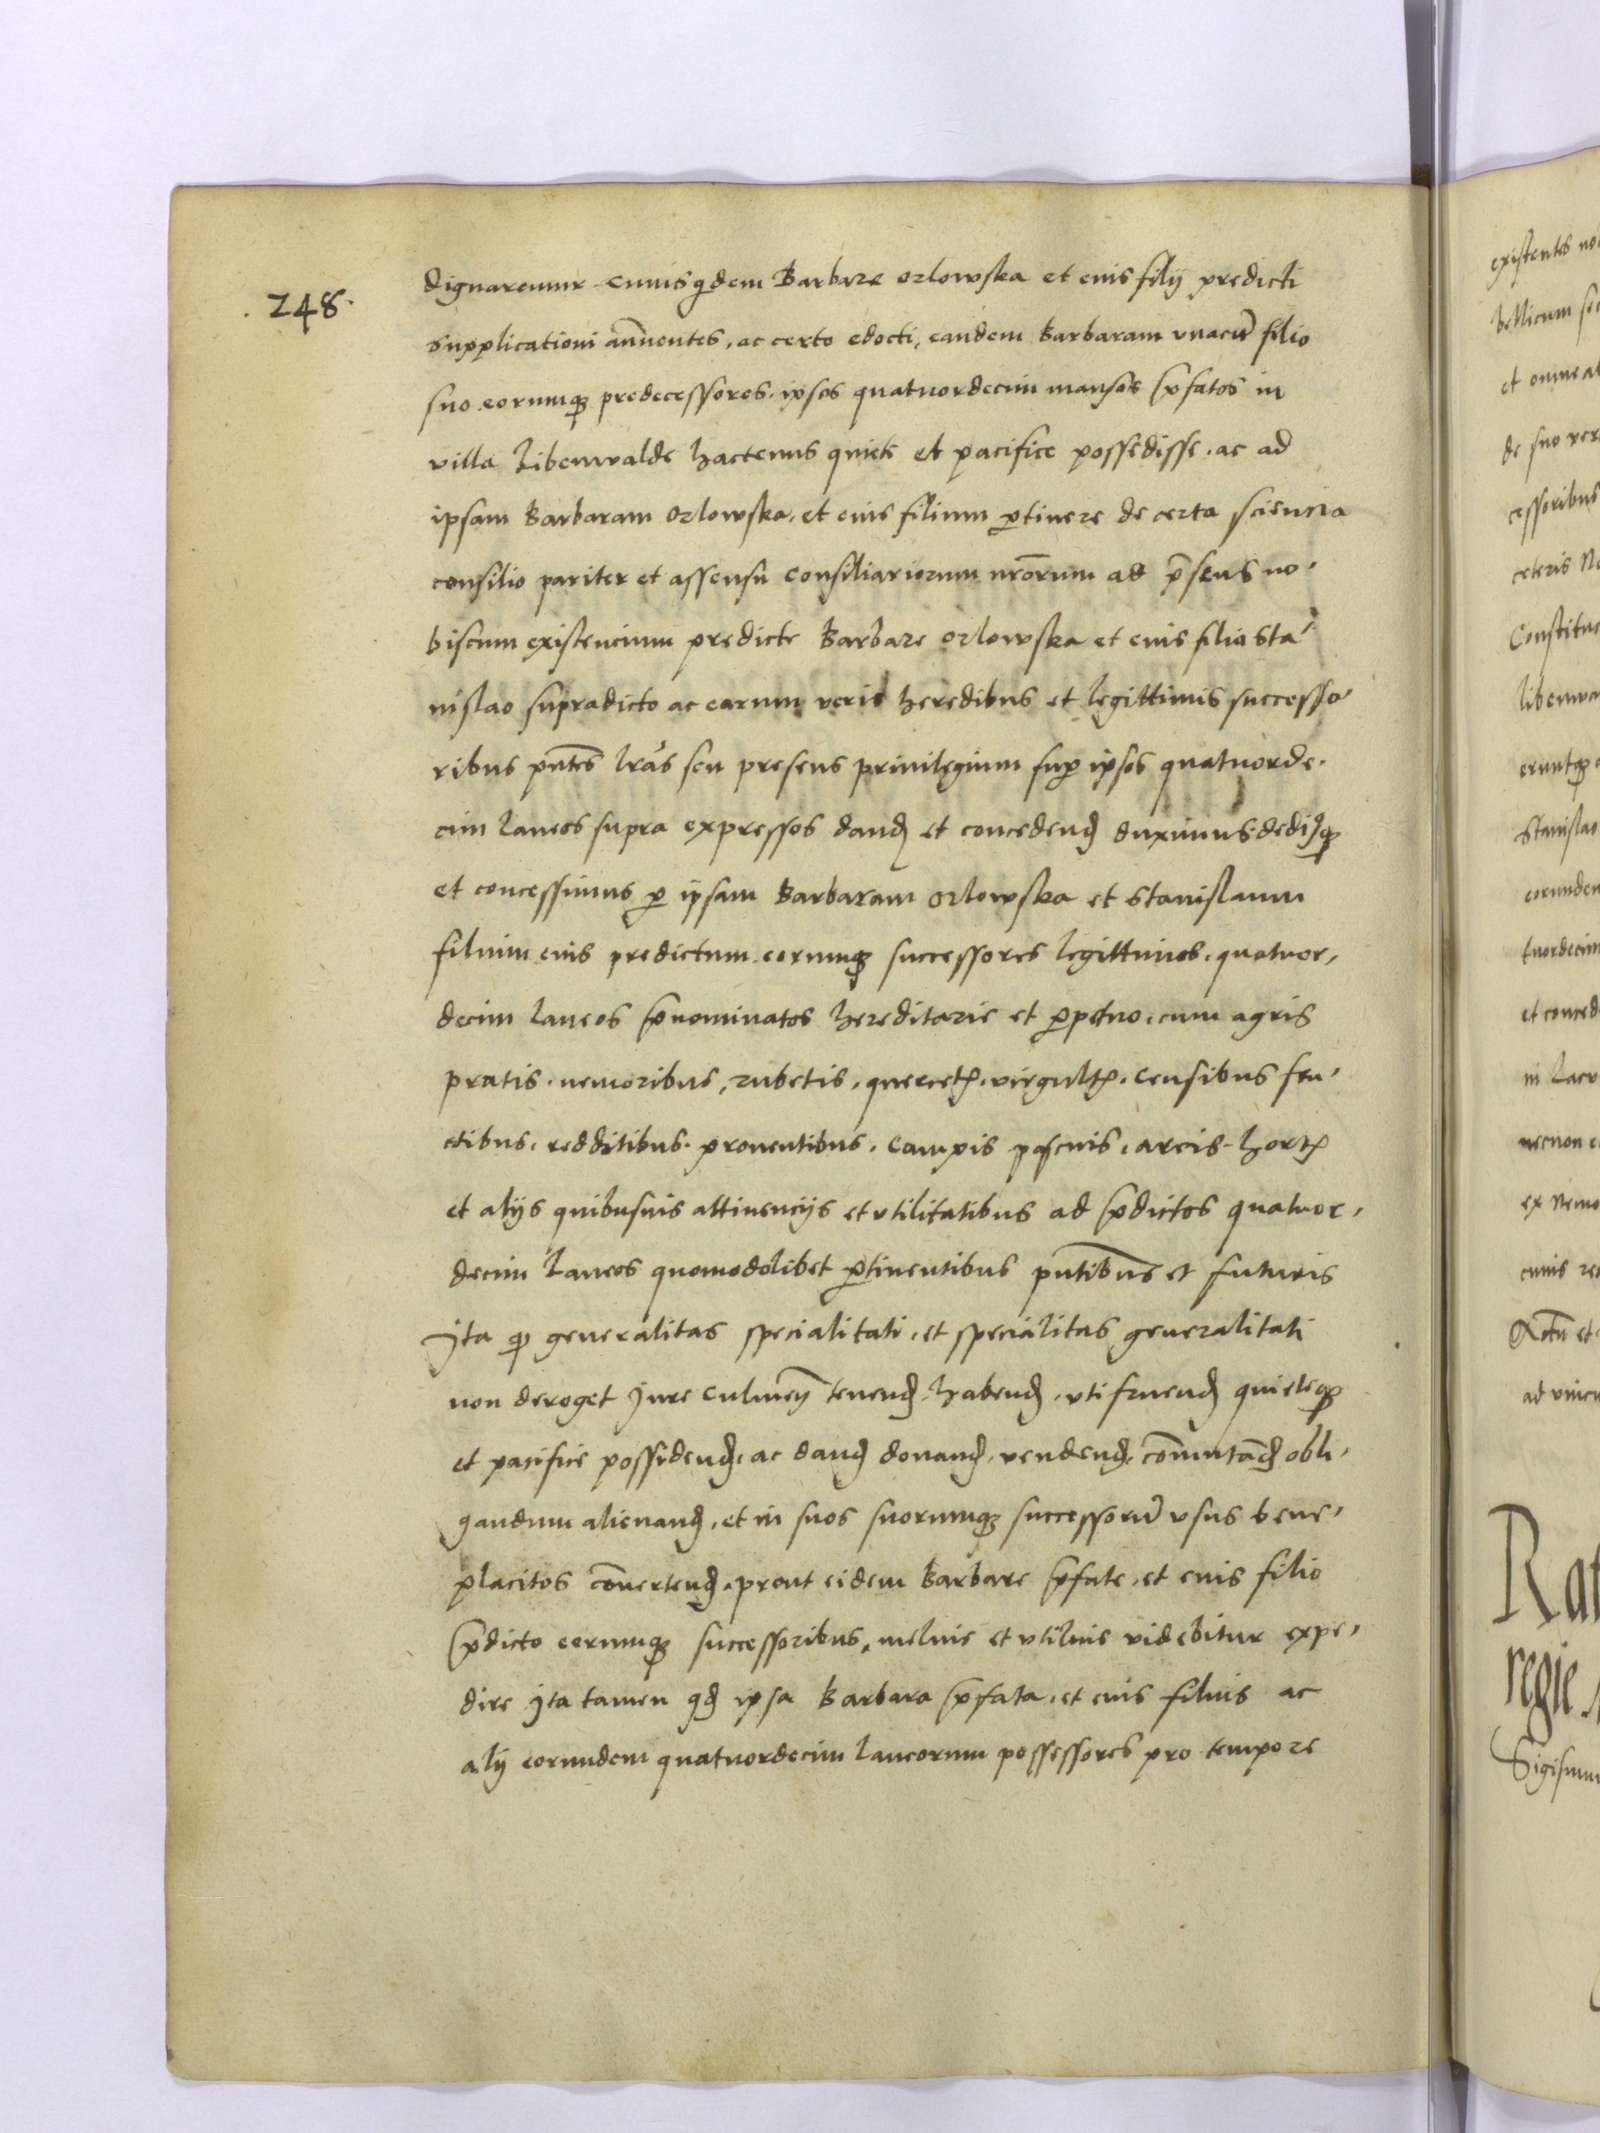 .248.
dignaremur cuiusqdem Barbare orlowska et eius filÿ predicti
supplicationi anuentes, ac certo edocti, eandem Barbaram vnacu filio
suo eorumqz predecessores. ipsos quatuordecim mansos pfatos in
villa Libenwalde hactenus quiete et pacifice possedisse. ac ad
ipsam Barbaram Orlowska, et eius filium ptinere de certa sciencia
consilio pariter et assensu consiliariorum nrorum ad psens no,
biscum existencium predicte Barbare orlowska et eius filio Sta,
nislao supradicto ac earum veris heredibus et legittimis successo,
ribus pntes lras seu presens priuilegium sup ipsos quatuorde.
cim laneos supra expressos dand et concedend duximus. dediqz
et concessimus p ipsam Barbaram orlowska et Stanislaum
filium eius predictum eorumqz successores legittimos. quatuor,
decim laneos pnominatos hereditarie et ppetuo. cum agris
pratis. nemoribus, rubetis, quercet, virgult. censibus fru,
ctibus. redditibus. prouentibus. campis pascuis, areis. hort
et alÿs quibusuis attinencÿs et vtilitatibus ad pdictos quatuor,
decim laneos quomodolibet ptinentibus pntibus et futuris
Ita q generalitas specialitati. et specialitas generalitati
non deroget Jure culmen tenend. habend. vti fruend quieteqz
et pacifice possidend. ac dand donand. vendend. comutand obli,
gandum alienand. et in suos suorumqz successoru vsus bene,
placitos conuertend. prout eidem Barbare pfate. et eius filio
pdicto eorumqz successoribus, melius et vtilius videbitur expe,
dire Ita tamen qd ipsa Barbara pfata. et eius filius ac
alÿ eorundem quatuordecim laneorum possessores pro tempore
existentes
bellicum
et omne
de suo
cessoribus
ceteris
Constitu
libenwa
eruntqz
Stanislao
eorunden
tuordecim
et conced
in lacu
necnon
ex nemo
cuius
Actu et
ad
Rat
regie
Sigismu